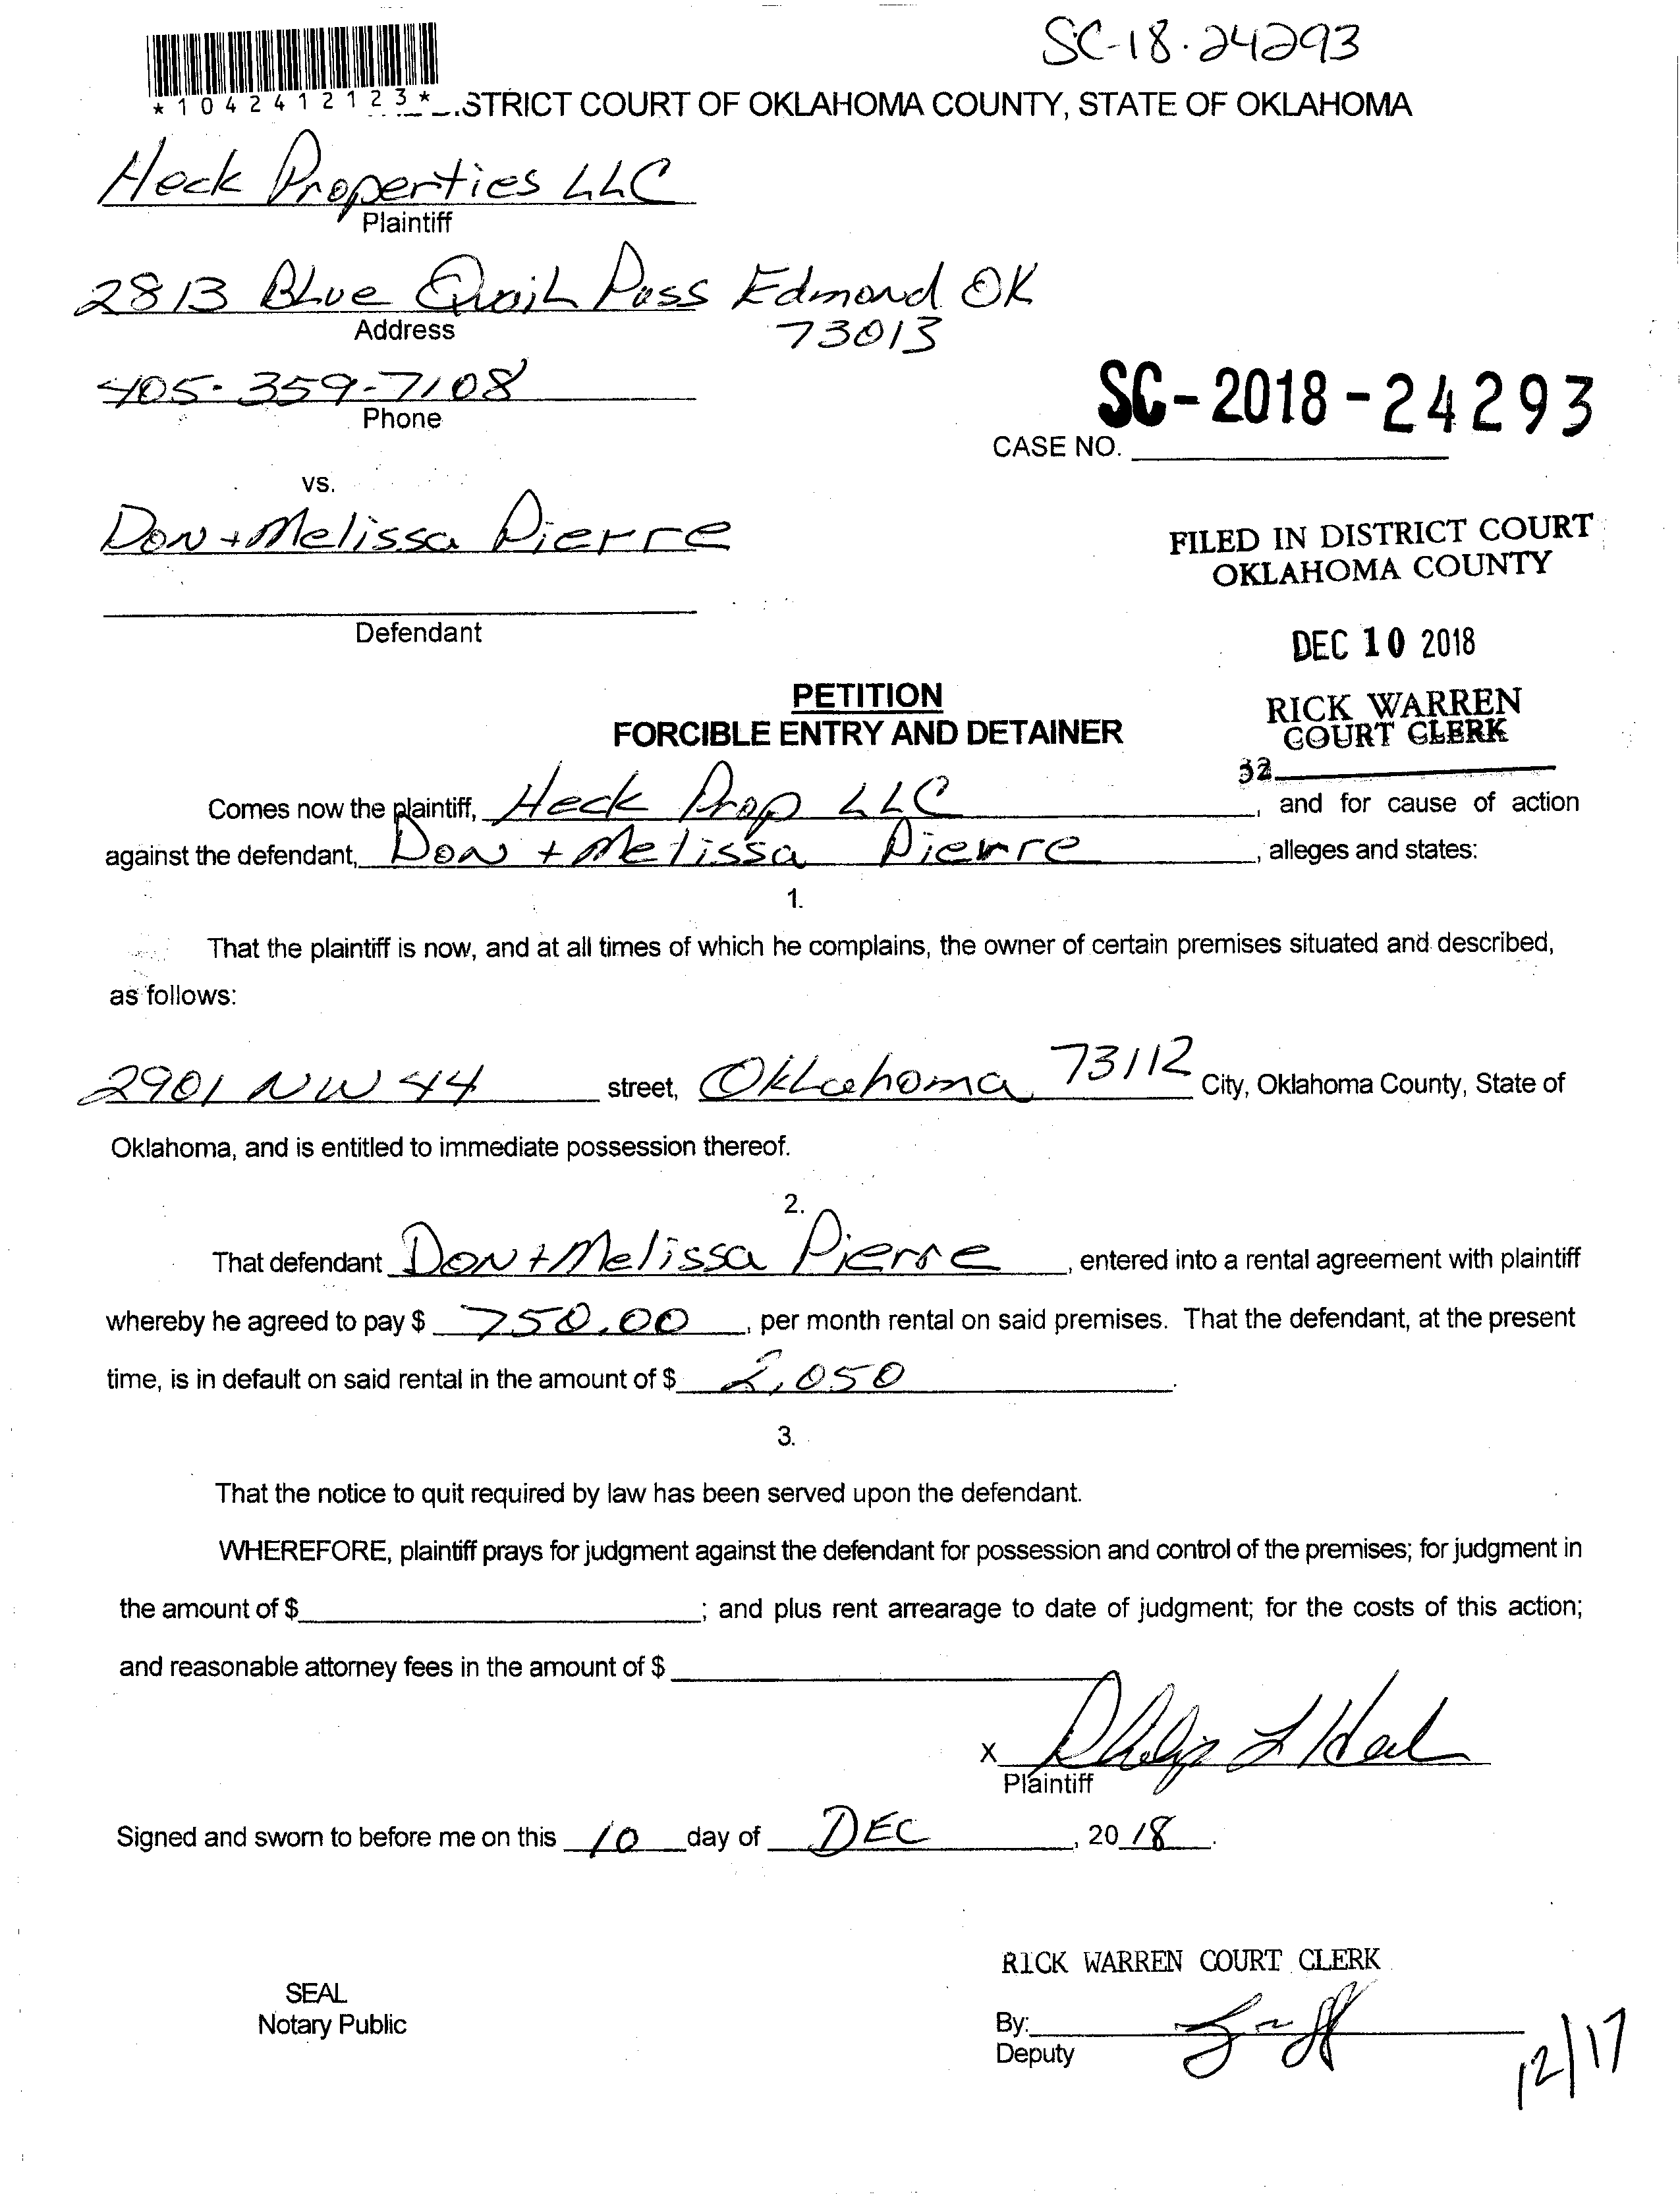 SC-18-24293
*1042412123*
STRICT COURT OF OKLAHOMA COUNTY, STATE OF OKLAHOMA
Heck Properties LLC
Plaintiff
2813 Blue Quail Pass Edmond OK
Address
73013
405-359-7108
Phone
SC-2018-24293
CASE NO.
vs.
Don + Melissa Pierre
FILED IN DISTRICT COURT
OKLAHOMA COUNTY
Defendant
DEC 10 2018
PETITION
FORCIBLE ENTRY AND DETAINER
RICK WARREN
COURT CLERK
32
Comes now the plaintiff, Heck Prop LLC, and for cause of action
against the defendant, Don + Melissa Pierre, alleges and states:
1.
That the plaintiff is now, and at all times of which he complains, the owner of certain premises situated and described,
as follows:
2901 NW 44 street, Oklahoma 73112 City, Oklahoma County, State of
Oklahoma, and is entitled to immediate possession thereof.
2.
That defendant Don + Melissa Pierre, entered into a rental agreement with plaintiff
whereby he agreed to pay $ 750.00, per month rental on said premises. That the defendant, at the present
time, is in default on said rental in the amount of $ 2,050.
3.
That the notice to quit required by law has been served upon the defendant.
WHEREFORE, plaintiff prays for judgment against the defendant for possession and control of the premises; for judgment in
the amount of $ ; and plus rent arrearage to date of judgment; for the costs of this action;
and reasonable attorney fees in the amount of $
x Philip L Heck
Plaintiff
Signed and sworn to before me on this 10 day of DEC, 2018.
RICK WARREN COURT CLERK
SEAL
Notary Public
By:
Deputy
12/17